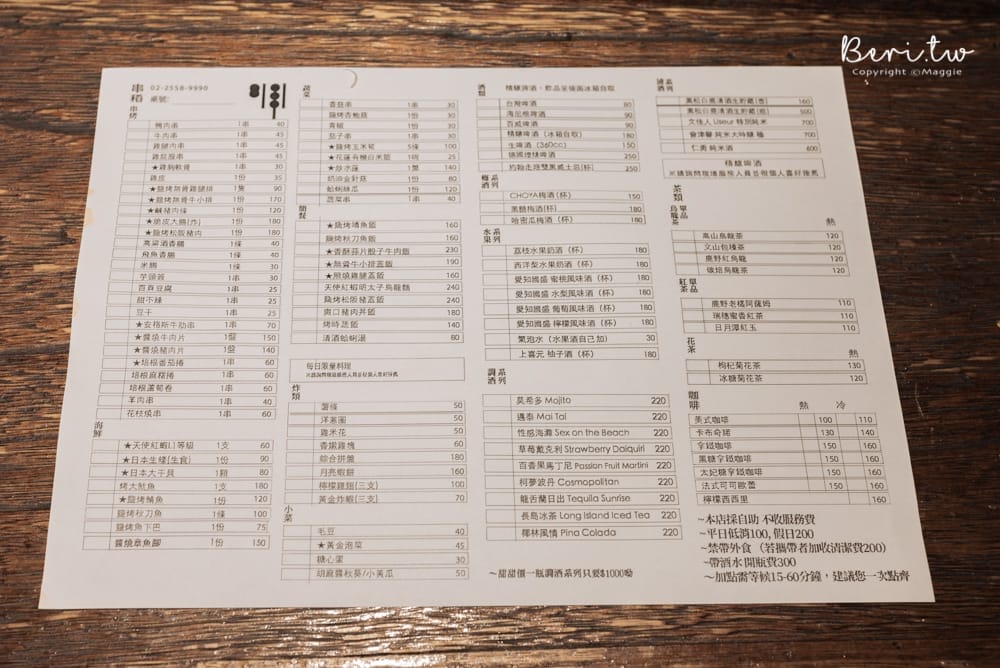 Beri.tw
Copyright ©Maggie
串稻 02-2558-9990
桌號:
串烤
鴨肉串 1串 40
牛肉串 1串 45
雞腿肉串 1串 45
雞屁股串 1串 45
★雞胸軟骨 1串 30
雞皮 1份 35
★鹽烤無骨雞腿排 1隻 90
★鹽烤無骨牛小排 1份 170
★鹹豬肉條 1份 120
★脆皮大腸(炸) 1份 180
★鹽烤松阪豬肉 1份 180
高粱酒香腸 1條 40
飛魚香腸 1條 40
米腸 1條 30
芋頭簽 1串 30
百頁豆腐 1串 25
甜不辣 1串 25
豆干 1串 25
★安格斯牛肋串 1串 70
★醬燒牛肉片 1盤 150
★醬燒豬肉片 1盤 140
★培根番茄捲 1串 60
培根麻糬捲 1串 60
培根蘆筍卷 1串 60
羊肉串 1串 40
花枝燒串 1串 60
海鮮
★天使紅蝦L1等級 1支 60
★日本生蠔(生食) 1份 90
★日本大干貝 1顆 80
烤大魷魚 1支 180
★鹽烤鯖魚 1份 120
鹽烤秋刀魚 1條 100
鹽烤魚下巴 1份 75
醬燒章魚腳 1份 150
蔬菜
香菇串 1串 30
鹽烤杏鮑菇 1份 30
青椒 1份 30
茄子串 1串 30
★鹽烤玉米筍 5條 100
★花蓮有機白米飯 1碗 25
★炒水蓮 1盤 140
奶油金針菇 1份 80
蛤蜊絲瓜 1份 120
蔬菜串 1串 40
簡餐
★鹽烤鯖魚飯 160
鹽烤秋刀魚飯 160
★香酥蒜片骰子牛肉飯 230
★無骨牛小排蓋飯 190
★照燒雞腿蓋飯 160
天使紅蝦明太子烏龍麵 240
鹽烤松阪豬蓋飯 240
爽口豬肉丼飯 180
烤時蔬飯 140
清酒蛤蜊湯 80
每日限量料理
炸類
薯條 50
洋蔥圈 50
雞米花 50
香嫩雞塊 60
綜合拼盤 180
月亮蝦餅 160
檸檬雞翅(三支) 100
黃金炸蝦(三支) 70
小菜
毛豆 40
★黃金泡菜 45
糖心蛋 30
胡麻醬秋葵/小黃瓜 50
酒類
精釀啤酒、飲品至後面冰箱自取
台灣啤酒 80
海尼根啤酒 90
百威啤酒 90
精釀啤酒（冰箱自取） 180
生啤酒（360cc） 150
德國煙燻啤酒 250
約翰走路雙黑威士忌(杯) 250
梅酒系列
CHOYA梅酒(杯) 150
黑糖梅酒(杯) 180
哈密瓜梅酒（杯） 180
水果系列
荔枝水果奶酒（杯） 180
西洋梨水果奶酒（杯） 180
愛知國盛 蜜桃風味酒（杯） 180
愛知國盛 水梨風味酒（杯） 180
愛知國盛 葡萄風味酒（杯） 180
愛知國盛 檸檬風味酒（杯） 180
氣泡水（水果酒自己加） 30
上喜元 柚子酒（杯） 180
調酒系列
莫希多 Mojito 220
邁泰 Mai Tai 220
性感海灘 Sex on the Beach 220
草莓戴克利 Strawberry Daiquiri 220
百香果馬丁尼 Passion Fruit Martini 220
柯夢波丹 Cosmopolitan 220
龍舌蘭日出 Tequila Sunrise 220
長島冰茶 Long Island Iced Tea 220
椰林風情 Pina Colada 220
~甜甜價一瓶調酒系列只要$1000呦
清酒系列
黑松白鹿清酒生貯藏(壺) 160
黑松白鹿清酒生貯藏(瓶) 500
文佳人 Liseur 特別純米 700
會津譽 純米大吟釀 極 700
仁勇 純米酒 600
精釀啤酒
茶類
烏龍茶單品 熱
高山烏龍茶 120
文山包種茶 120
鹿野紅烏龍 120
碳焙烏龍茶 120
紅茶單品
鹿野老欉阿薩姆 110
瑞穗蜜香紅茶 110
日月潭紅玉 110
花茶 熱
枸杞菊花茶 130
冰糖菊花茶 120
咖啡 熱 冷
美式咖啡 100 110
卡布奇諾 130 140
拿鐵咖啡 150 160
黑糖拿鐵咖啡 150 160
太妃糖拿鐵咖啡 150 160
法式可可歐蕾 150 160
檸檬西西里 160
~本店採自助 不收服務費
~平日低消100, 假日200
~禁帶外食（若攜帶者加收清潔費200）
~帶酒水 開瓶費300
~加點需等候15-60分鐘，建議您一次點齊